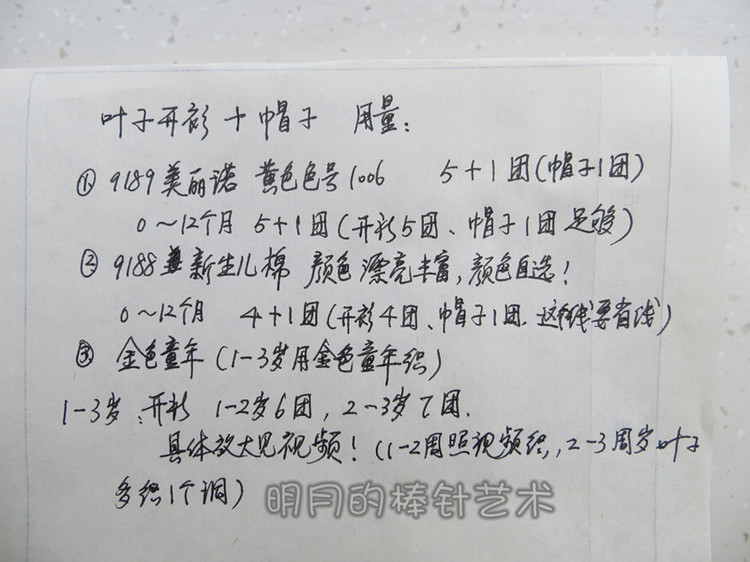 叶子开衫+帽子 用量:
① 9189美丽诺 黄色色号1006 5+1团(帽子1团)
0~12个月 5+1团(开衫5团、帽子1团足够)
② 9188 新生儿棉 颜色漂亮丰富,颜色自选!
0~12个月 4+1团(开衫4团、帽子1团.这线要省线)
③ 金色童年(1-3岁用金色童年织)
1-3岁:开衫 1-2岁6团,2-3岁7团.
具体放大见视频!(1-2周照视频织,,2-3周岁叶子
多织1个洞)
明月的棒针艺术